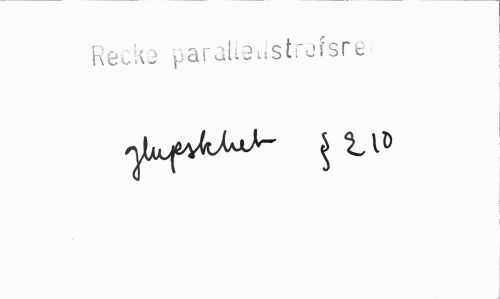 Recke parallellstrofsreg
glupskhet § 210